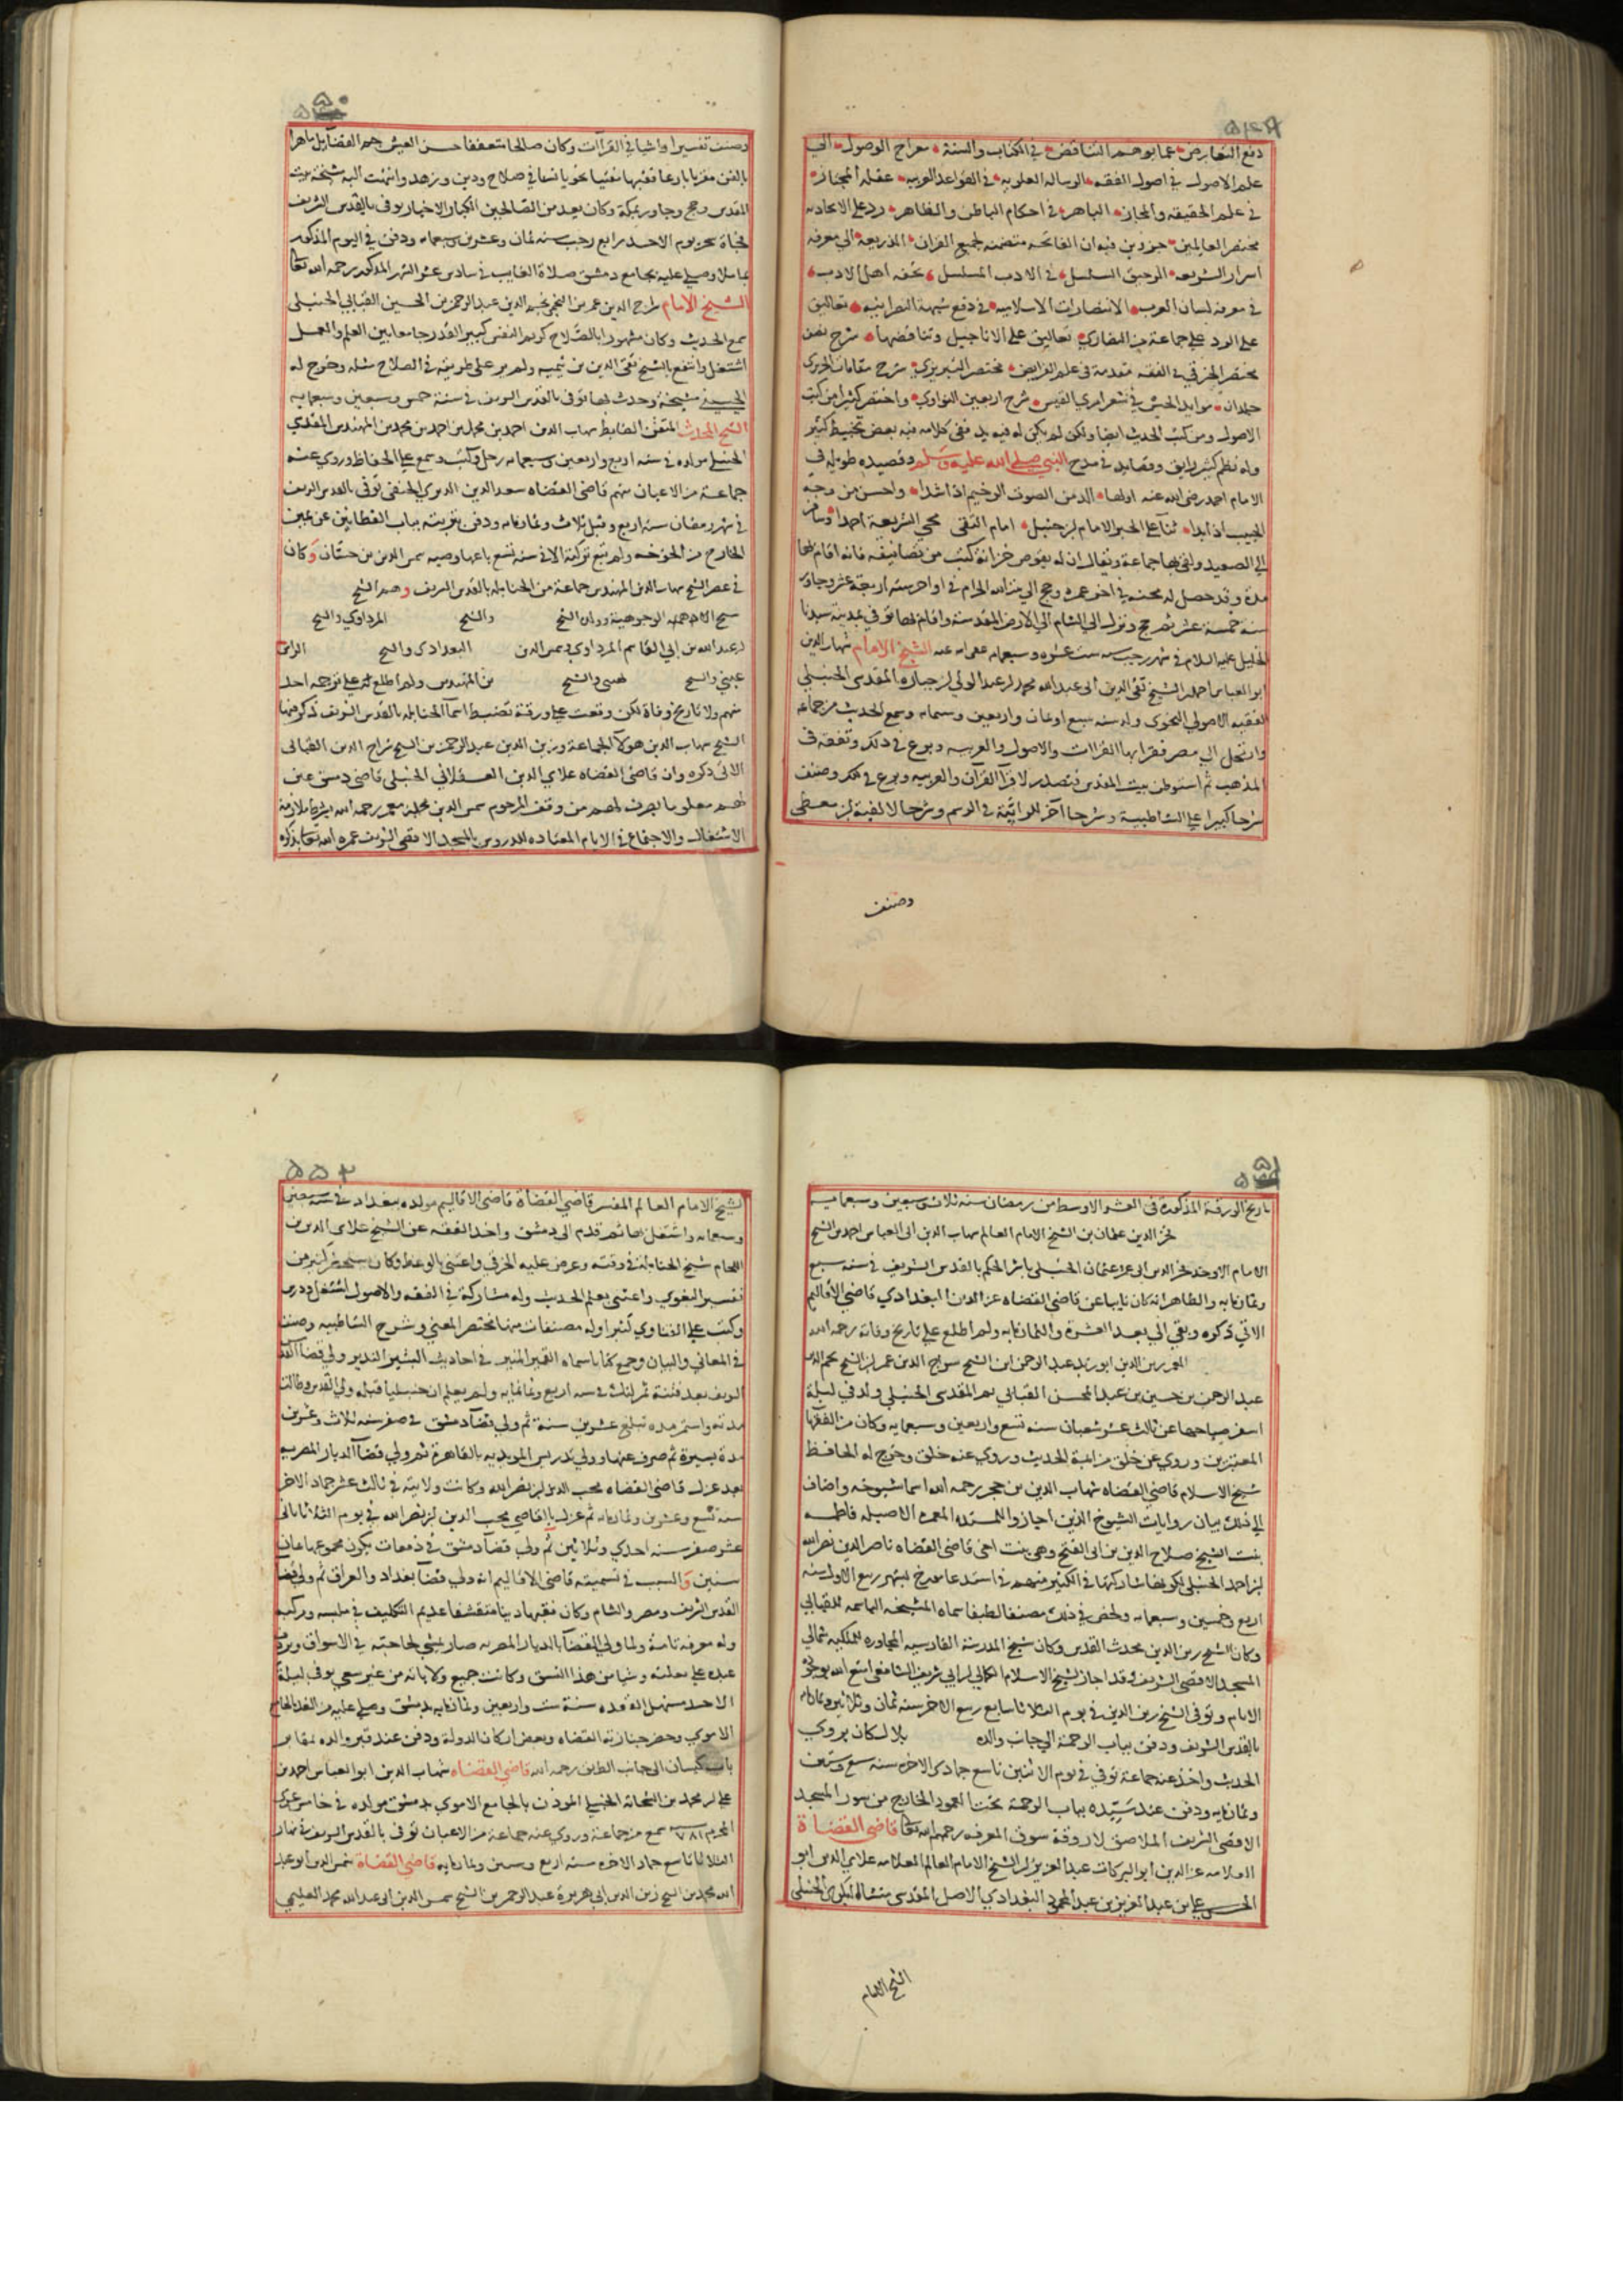 دفع التعارض عما يوهم التناقض في الكتاب والسنة معراج الوصول الى
علم الاصول في اصول الفقه الرسالة العلوية في القواعد العربية غفلة المجتاز
في علم الحقيقة والمجاز الباهر في احكام الباطن والظاهر رد على الاتحادية
مختصر العالمين جزوين فيه ان الفاتحة متضمنة لجميع القران الذريعة الى معرفة
اسرار الشريعة الرحيق السلسل في الادب المسلسل تحفة اهل الادب
في معرفة لسان العرب الانتصارات الاسلامية في دفع شبهة النصرانية تعاليق
على الرد على جماعة من النصارى تعاليق على الاناجيل وتناقضها شرح نصف
مختصر الخرقي في الفقه مقدمة في علم الفرايض مختصر التبريزي شرح مقامات الحريري
مجلدان موايد الحيس في شعر امرئ القيس شرح اربعين النواوي واختصر كثيرا من كتب
الاصول ومن كتب الحديث ايضا ولكن لم يكن له فيه يد ففي كلامه فيه بعض تخبيط كثير
وله نظم كثير رايق وقصايد في مدح النبي صلى الله عليه وسلم وقصيدة طويلة في
الامام احمد رضي الله عنه اولها الذ من الصوت الرخيم اذا شدا واحسن من وجه
الحبيب اذا بدا ثناء على الحبر الامام ابن حنبل امام التقى محي الشريعة احمدا وسافر
الى الصعيد ولقي بها جماعة ويقال ان له بقوص خزانة كتب من تصانيفه فانه اقام بها
مدة وقد حصل له محنة في اخر عمره وحج الى بيت الله الحرام في اواخر سنة اربعة عشر وجاور
سنة خمسة عشر ثم حج ونزل الى الشام الى الارض المقدسة واقام بها توفي بمدينة سيدنا
الخليل عليه السلام في شهر رجب سنة ست عشرة وسبعماية عفى الله عنه الشيخ الامام شهاب الدين
ابو العباس احمد ابن الشيخ تقي الدين ابي عبد الله محمد ابن عبد الولي ابن جبارة المقدسي الحنبلي
الفقيه الاصولي النحوي ولد سنة سبع او ثمان واربعين وستماية وسمع الحديث من جماعة
وارتحل الى مصر فقرا بها القراات والاصول والعربية وبرع في ذلك وتفقه في
المذهب ثم استوطن بيت المقدس فتصدر لاقراء القرآن والعربية وبرع في ذلك وصنف
شرحا كبيرا على الشاطبية وشرحا آخر للرائية في الرسم وشرحا لالفية ابن معطي
وصنف
وصنف تفسيرا واشيا في القراآت وكان صالحا متعففا حسن العيش جم الفضايل ماهرا
بالفن مقريا بارعا فقيها متقنيا نحويا نشا في صلاح ودين وزهد وانتهت اليه مشيخة بيت
المقدس وحج وجاور بمكة وكان يعد من الصالحين الكبار الاخيار توفي بالقدس الشريف
فجاة سحر يوم الاحد رابع رجب سنة ثمان وعشرين وسبعماية ودفن في اليوم المذكور
بماملا وصلي عليه بجامع دمشق صلاة الغايب في سادس عشر الشهر المذكور رحمه الله تعالى
الشيخ الامام سراج الدين عمر بن الشيخ نجم الدين عبد الرحمن بن الحسين القبابي الحنبلي
سمع الحديث وكان مشهورا بالصلاح كريم النفس كبير القدر جامعا بين العلم والعمل
اشتغل وانتفع بالشيخ تقي الدين بن تيمية ولم ير على طريقته في الصلاح مثله وخرج له
الحسيني مشيخة وحدث بها توفي بالقدس الشريف في سنة خمس وسبعين وسبعماية
الشيخ المحدث المتقن الضابط شهاب الدين احمد بن محمد بن احمد بن محمد بن المهندس المقدسي
الحنبلي مولده في سنة اربع واربعين وسبعماية رحل وكتب وسمع على الحفاظ وروى عنه
جماعة من الاعيان منهم قاضي القضاة سعد الدين الديري الحنفي توفي بالقدس الشريف
في شهر رمضان سنة اربع وقيل ثلاث وثمانماية ودفن بتربته بباب القطانين عن يمين
الخارج من الخوخة ولم تبع تركته الا في سنة تسع باعها وصيه شمس الدين بن حسان وكان
في عصر الشيخ شهاب الدين المهندس جماعة من الحنابلة بالقدس الشريف وهم الشيخ
والشيخ المرداوي والشيخ
ابن عبد الله بن ابي القاسم المرداوي شمس الدين البغدادي والشيخ
عيسى والشيخ والشيخ بن المهندس ولم اطلع لهم على ترجمة احد
منهم ولا تاريخ وفاة لكن وقعت على ورقة تضبط اسما الحنابلة بالقدس الشريف ذكر منها
الشيخ شهاب الدين هولاء الجماعة وزين الدين عبد الرحمن بن الشيخ سراج الدين القبابي
الاتي ذكره وان قاضي القضاة علاي الدين العسقلاني الحنبلي قاضي دمشق عين
لهم معلوما يصرف لهم من وقف المرحوم شمس الدين محمد بن معمر رحمه الله بشرط ملازمة
الاشتغال والاجتماع في الايام المعتاده للدروس بالمسجد الاقصى الشريف عمره الله تعالى بذكره
تاريخ الورقة المذكورة في العشر الاوسط من رمضان سنة ثلاث وسبعين وسبعماية
فخر الدين عثمان بن الشيخ الامام العالم شهاب الدين ابي العباس احمد بن الشيخ
الامام الاوحد فخر الدين ابي عمر عثمان الحنبلي باشر الحكم بالقدس الشريف في سنة سبع
وثمانماية والظاهر انه كان نايبا عن قاضي القضاة عز الدين البغدادي قاضي الاقاليم
الاتي ذكره وبقي الى بعد العشرة والثمانماية ولم اطلع على تاريخ وفاته رحمه الله
المعمر زين الدين ابو زيد عبد الرحمن ابن الشيخ سراج الدين عمر ابن الشيخ نجم الدين
عبد الرحمن بن حسين بن عبد المحسن القبابي ثم المقدسي الحنبلي ولد في ليلة
اسفر صباحها عن ثالث عشر شعبان سنة تسع واربعين وسبعماية وكان من الفقها
المعتبرين وروى عن خلق من ائمة الحديث وروى عنه خلق وخرج له الحافظ
شيخ الاسلام قاضي القضاة شهاب الدين بن حجر رحمه الله اسما شيوخه واضاف
الى ذلك بيان روايات الشيوخ الذين اجازوا المسندة المعمرة الاصيلة فاطمة
بنت الشيخ صلاح الدين بن ابي الفتح وهي بنت اخي قاضي القضاة ناصر الدين نصر الله
ابن احمد الحنبلي لكونها شاركتها في الكثير منهم في استدعا مورخ بشهر ربيع الاول سنة
اربع وخمسين وسبعماية ولخص في ذلك مصنفا لطيفا سماه المشيخة الباسمة للقبابي
وكان الشيخ زين الدين محدث القدس وكان شيخ المدرسة الفارسية المجاورة للملكية شمالي
المسجد الاقصى الشريف وقد اجاز لشيخ الاسلام الكمالي ابن ابي شريف الشافعي امتع الله بوجوده
الانام وتوفي الشيخ زين الدين في يوم الثلاثا سابع ربيع الاخر سنة ثمان وثلاثين وثمانماية
بالقدس الشريف ودفن بباب الرحمة الى جانب والده بلال كان يروي
الحديث واخذ عنه جماعة توفي في يوم الاثنين تاسع جمادى الاخرة سنة سبع وستين
وثمانماية ودفن عند سيده بباب الرحمة تحت العمود الخارج من سور المسجد
الاقصى الشريف الملاصق لاروقة سوق المعرفة رحمهم الله تعالى قاضي القضاة
العلامة عز الدين ابو البركات عبد العزيز ابن الشيخ الامام العالم العلامة علاي الدين ابو
الحسن علي بن عبد العزيز بن عبد المحمود البغدادي الاصل المقدسي منشاه البكري الحنبلي
الشيخ الامام
الشيخ الامام العالم المفسر قاضي القضاة قاضي الاقاليم مولده ببغداد في سنة سبعين
وسبعماية واشتغل بها ثم قدم الى دمشق واخذ الفقه عن الشيخ علاي الدين بن
اللحام شيخ الحنابلة في وقته وعرض عليه الخرقي واعتنى بالوعظ وكان يستحضر كثيرا من
تفسير البغوي واعتنى بعلم الحديث وله مشاركة في الفقه والاصول اشتغل ودرس
وكتب على الفتاوي كثيرا وله مصنفات منها مختصر المغني وشرح الشاطبية وصنف
في المعاني والبيان وجمع كتابا سماه القمر المنير في احاديث البشير النذير ولي قضاء القدس
الشريف بعد فتنة تمرلنك في سنة اربع وثمانماية ولم يعلم ان حنبليا قبله ولي القدس وطالت
مدته واستمر مدة تبلغ عشرين سنة ثم ولي قضاء دمشق في صفر سنة ثلاث وعشرين
مدة يسيرة ثم صرف عنها وولي تدريس المويدية بالقاهرة ثم ولي قضا الديار المصرية
بعد عزل قاضي القضاة محب الدين ابن نصر الله وكانت ولايته في ثالث عشر جماد الاخر
سنة تسع وعشرين وثمانماية ثم عزل بالقاضي محب الدين ابن نصر الله في يوم الثلاثا ثاني
عشر صفر سنة احدي وثلاثين ثم ولي قضاء دمشق في دفعات يكون مجموعها ثمان
سنين والسبب في تسميته قاضي الاقاليم انه ولي قضا بغداد والعراق ثم ولي قضا
القدس الشريف ومصر والشام وكان فقيها دينا متقشفا عديم التكليف في ملبسه ومركبه
وله معرفة تامة ولما ولي القضا بالديار المصرية صار يمشي لحاجته في الاسواق ويردف
عبده على بغلته وشيا من هذا النسق وكانت جميع ولاياته من غير سعي توفي ليلة
الاحد مستهل القعدة سنة ست واربعين وثمانماية بدمشق وصلي عليه من الغد بالجامع
الاموي وحضر جنازته القضاة وبعض اركان الدولة ودفن عند قبر والده بمقابر
باب كيسان الى جانب الطريق رحمه الله قاضي القضاة شهاب الدين ابو العباس احمد بن
علي ابن محمد بن الشحام الحنبلي الموذن بالجامع الاموي بدمشق مولده في خامس عشري
المحرم سنة ٧٨١ سمع من جماعة وروى عنه جماعة من الاعيان توفي بالقدس الشريف في نهار
الثلاثا تاسع جماد الاخرة سنة اربع وستين وثمانماية قاضي القضاة شمس الدين ابو عبد
الله محمد بن الشيخ زين الدين ابي هريرة عبد الرحمن بن الشيخ شمس الدين ابو عبد الله محمد العليمي